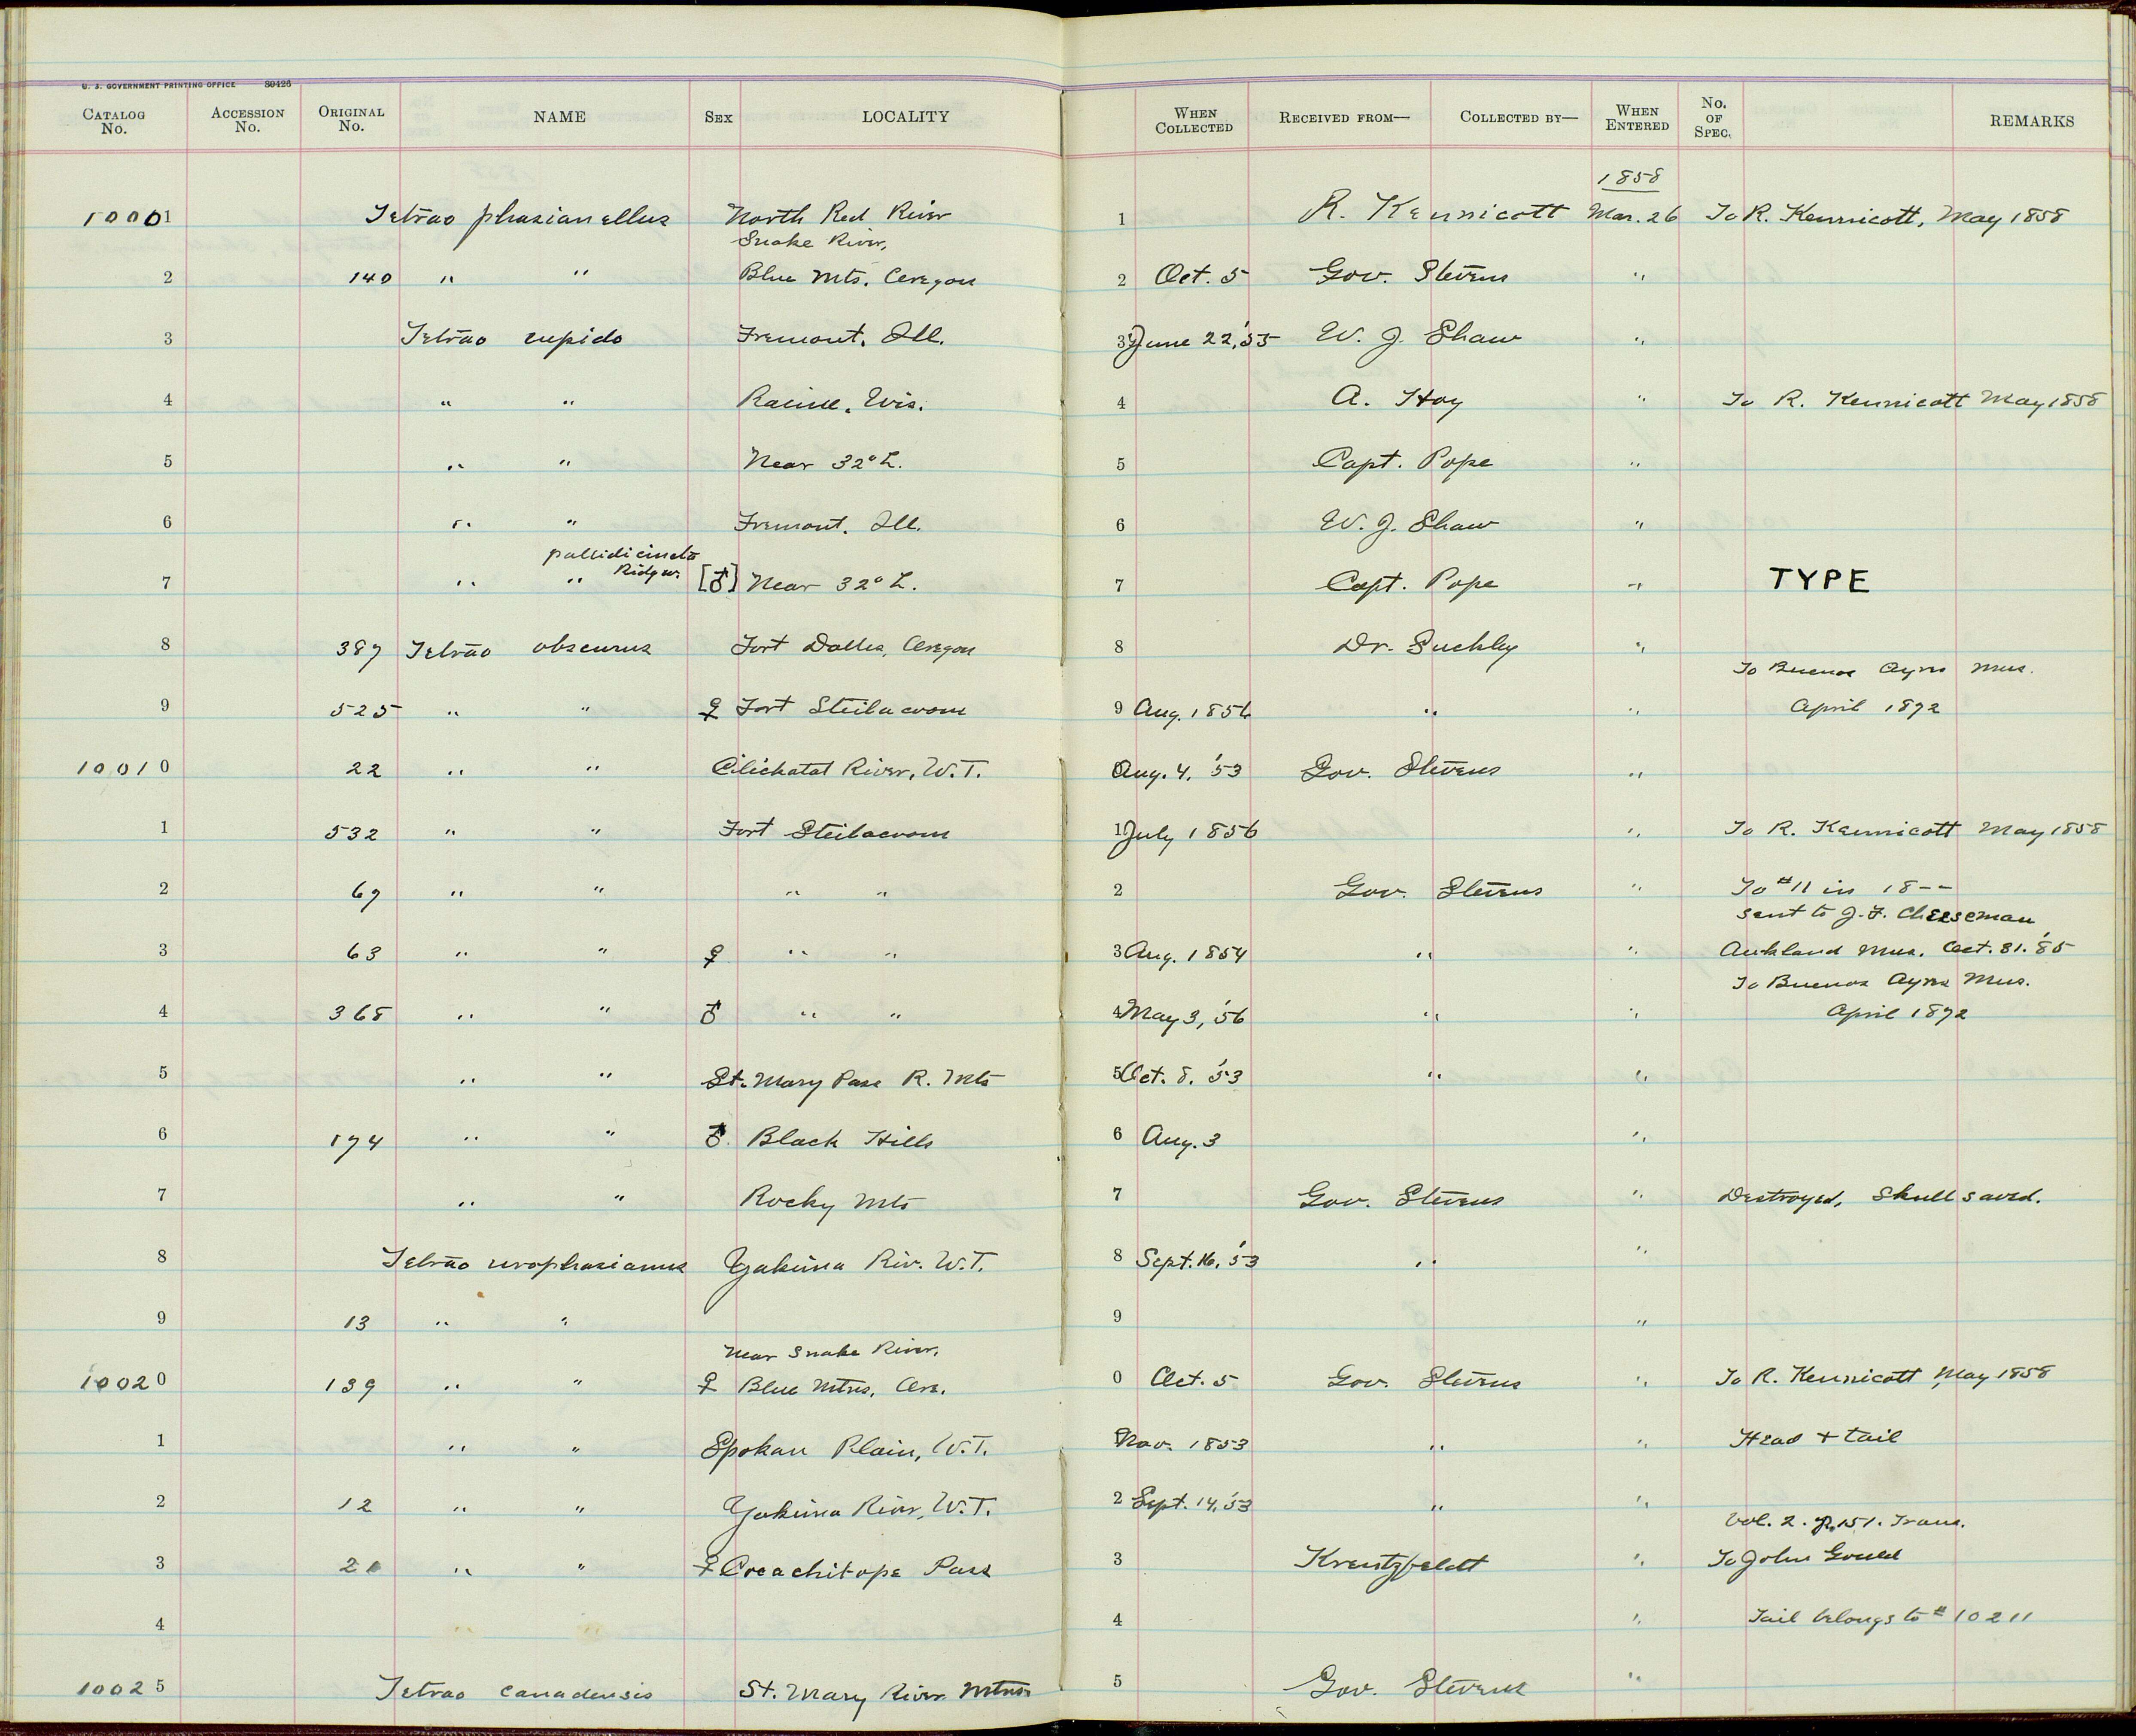 U. S. GOVERNMENT PRINTING OFFICE 80426
CATALOG No. ACCESSION No. ORIGINAL No. NAME SEX LOCALITY WHEN COLLECTED RECEIVED FROM— COLLECTED BY— WHEN ENTERED No. OF SPEC. REMARKS
1858
10001 Tetrao phasianellus North Red River 1 R. Kennicott Mar. 26 To R. Kennicott, May 1858
Snake River,
2 140 " " Blue Mts. Oregon 2 Oct. 5 Gov. Stevens "
3 Tetrao cupido Fremont. Ill. 3 June 22, '55 W. J. Shaw "
4 " " Racine. Wis. 4 A. Hoy " To R. Kennicott May 1858
5 " " Near 32° L. 5 Capt. Pope "
6 " " Fremont. Ill. 6 W. J. Shaw "
pallidicincta
Ridgw.
7 " " [♂] Near 32° L. 7 Capt. Pope " TYPE
8 387 Tetrao obscurus Fort Dalles, Oregon 8 Dr. Suckley "
To Buenos Ayres Mus.
9 525 " " ♀ Fort Steilacoom 9 Aug. 1856 " " April 1872
10010 22 " " Clichatat River, W.T. 0 Aug. 4. '53 Gov. Stevens "
1 532 " " Fort Steilacoom 1 July 1856 " To R. Kennicott May 1858
2 67 " " " " 2 Gov. Stevens " To #11 in 18--
sent to J. F. Cheeseman
3 63 " " ♀ " " 3 Aug. 1854 " " Aukland Mus. Oct. 31. '85
To Buenos Ayres Mus.
4 368 " " ♂ " " 4 May 3, '56 " " April 1872
5 " " St. Mary Pass R. Mts 5 Oct. 8. '53 " "
6 174 " " ♂. Black Hills 6 Aug. 3 "
7 " " Rocky Mts 7 Gov. Stevens " Destroyed, Skull saved.
8 Tetrao urophasianus Yakima Riv. W.T. 8 Sept. 16, '53 " "
9 13 " " 9 "
Near Snake River,
10020 139 " " ♀ Blue Mtns. Ore. 0 Oct. 5 Gov. Stevens " To R. Kennicott, May 1858
1 " " Spokan Plain, W.T. Nov. 1853 " " Head + tail
2 12 " " Yakima River, W.T. 2 Sept. 14, '53 " "
Vol. 2. p. 151. Trans.
3 " " ♀ Coachitope Pass 3 Kreutzfeldt " To John Gould
4 " " 4 " Tail belongs to # 10211
10025 Tetrao canadensis St. Mary River Mtns. 5 Gov. Stevens "